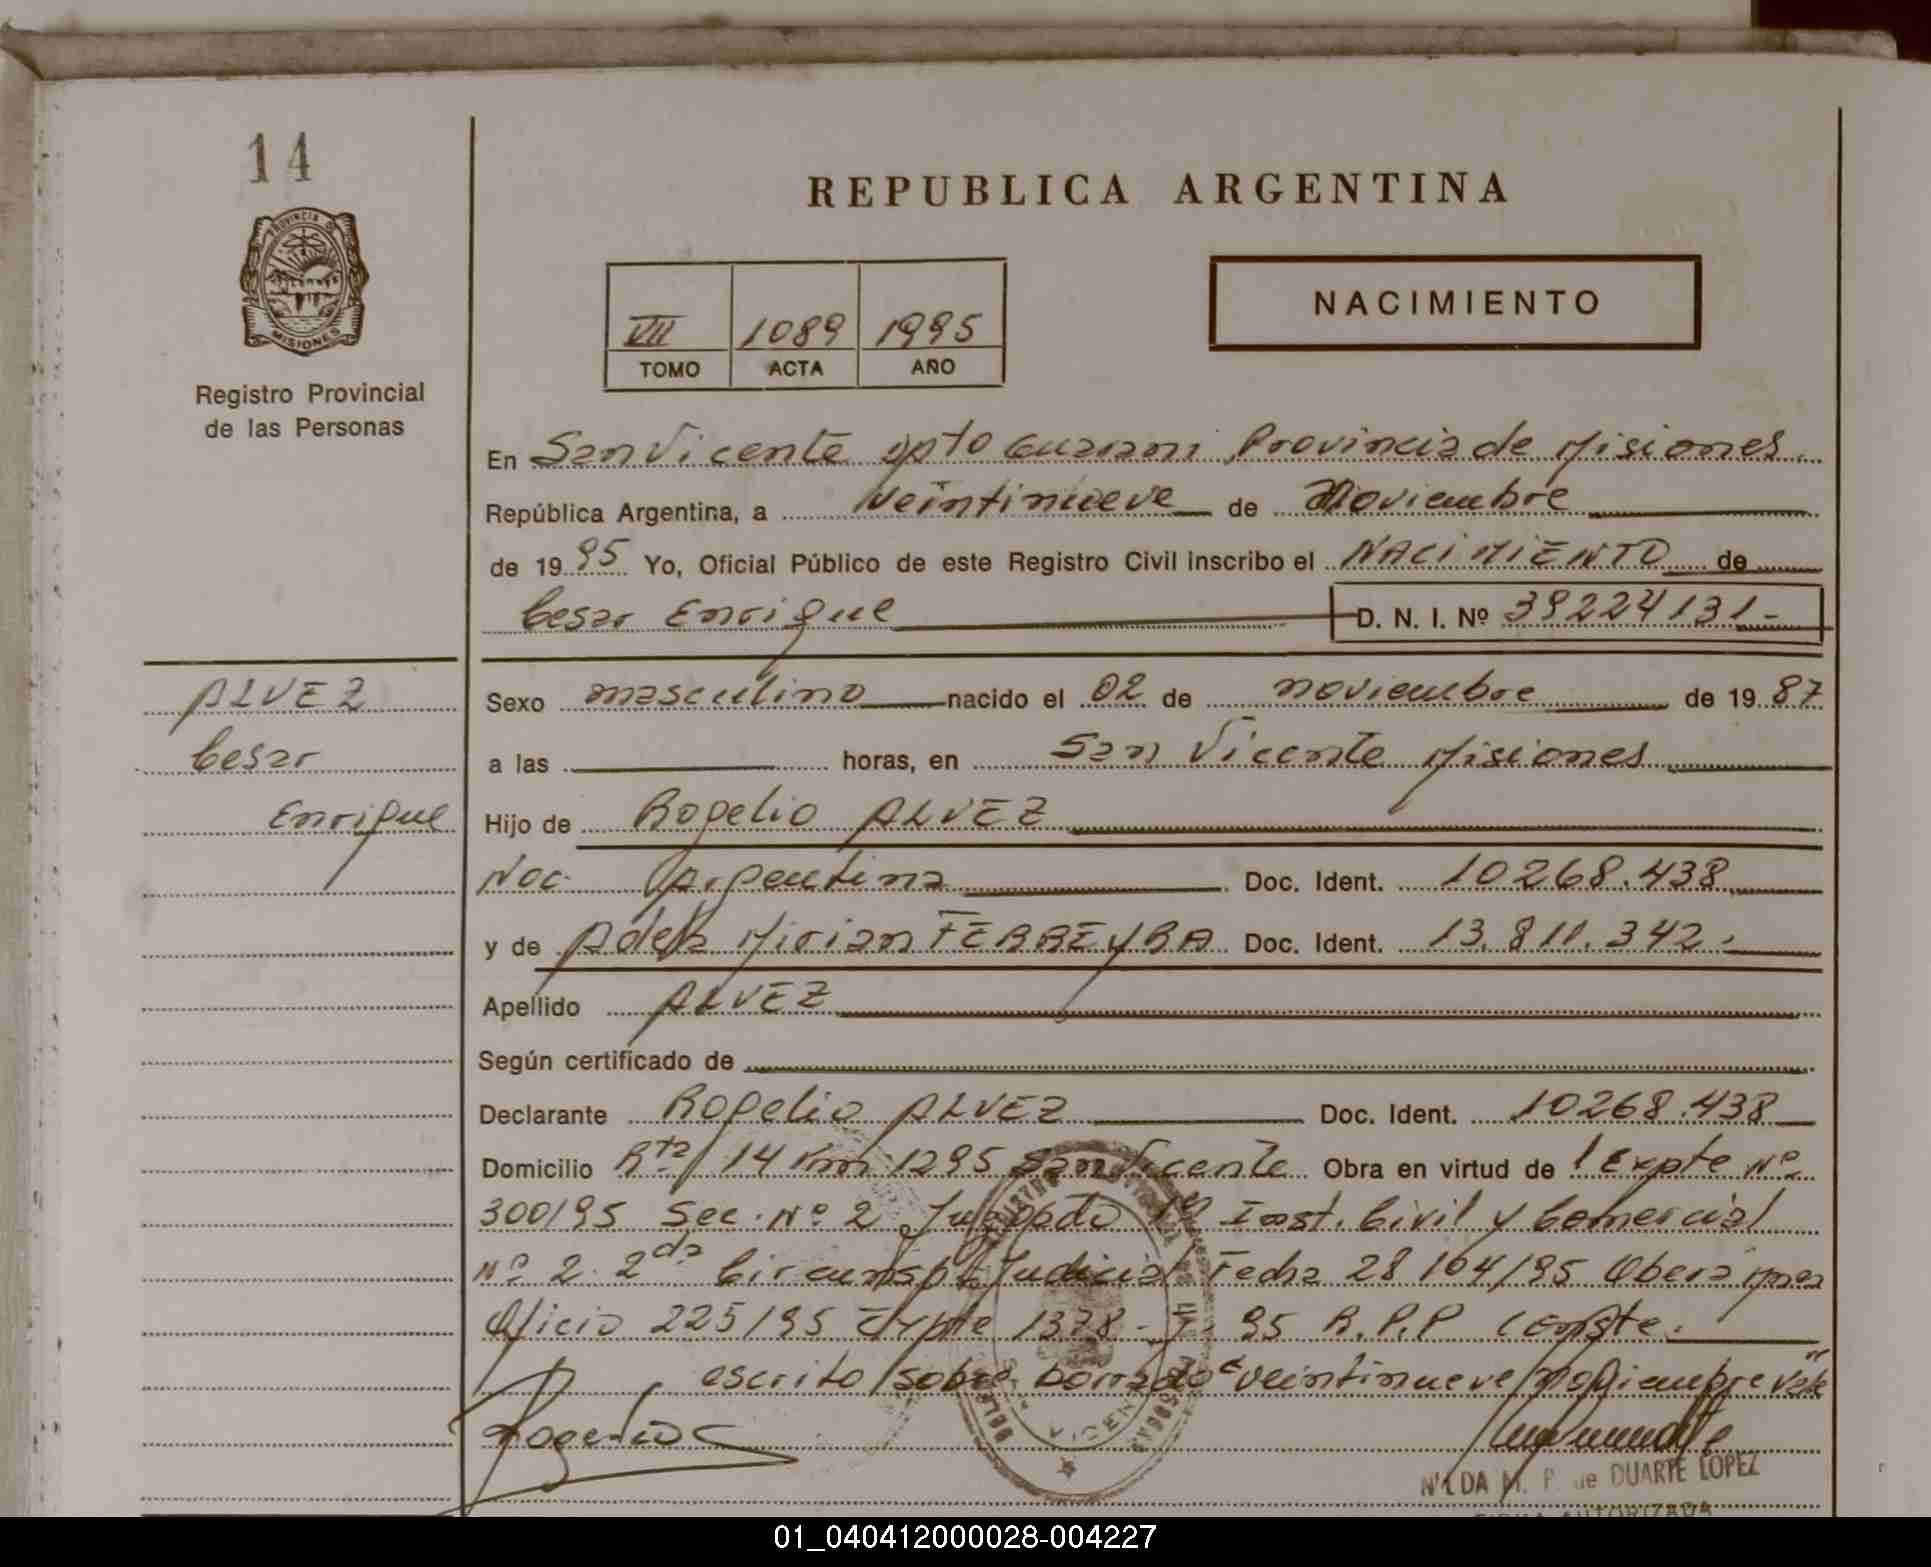 14
PROVINCIA DE
MISIONES
Registro Provincial
de las Personas
REPUBLICA ARGENTINA
VII 1089 1995
TOMO ACTA AÑO
NACIMIENTO
En San Vicente Dpto Guarani Provincia de Misiones
República Argentina, a veintinueve de Noviembre
de 1995 Yo, Oficial Público de este Registro Civil inscribo el NACIMIENTO de
Cesar Enrique D. N. I. Nº 39224131-
ALVEZ
Cesar
Enrique
Sexo masculino nacido el 02 de noviembre de 1987
a las horas, en San Vicente Misiones
Hijo de Rogelio ALVEZ
Nac. Argentina Doc. Ident. 10268.438
y de Adela Mirian FERREYRA Doc. Ident. 13.811.342.
Apellido ALVEZ
Según certificado de
Declarante Rogelio ALVEZ Doc. Ident. 10268.438
Domicilio Rta/ 14 Km 1295 San Vicente Obra en virtud de Expte Nº
300/95 Sec. Nº 2 Juzgado 1º Inst. Civil y Comercial
Nº 2 2da Circunsp. Judicial Fecha 28/04/95 Obera Mnes
Oficio 225/95 Expte 1378 95 R.P.P Conste.
escrito sobre borrado "veintinueve/Noviembre" Vale
Rogelio
VICENTE
NILDA M. P. de DUARTE LOPEZ
FIRMA AUTORIZADA
01_040412000028-004227